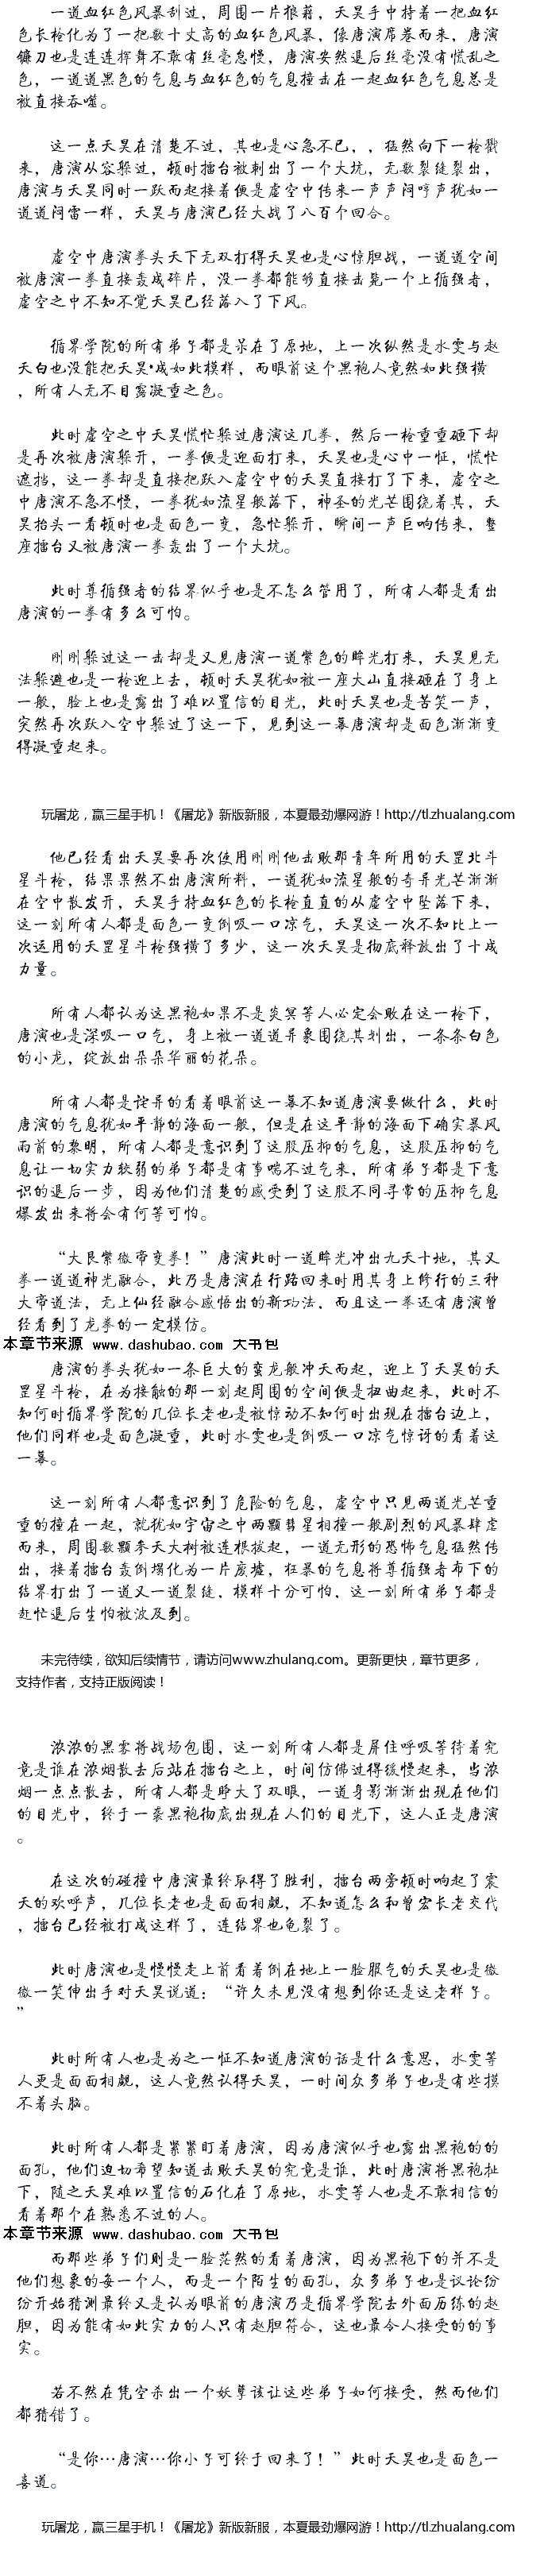 一道血红色风暴刮过，周围一片狼藉，天昊手中持着一把血红
色长枪化为了一把数十丈高的血红色风暴，像唐演席卷而来，唐演
镰刀也是连连挥舞不敢有丝毫怠慢，唐演安然退后丝毫没有慌乱之
色，一道道黑色的气息与血红色的气息撞击在一起血红色气息总是
被直接吞噬。
这一点天昊在清楚不过，其也是心急不已，，猛然向下一枪戳
来，唐演从容躲过，顿时擂台被刺出了一个大坑，无数裂缝裂出，
唐演与天昊同时一跃而起接着便是虚空中传来一声声闷哼声犹如一
道道闷雷一样，天昊与唐演已经大战了八百个回合。
虚空中唐演拳头天下无双打得天昊也是心惊胆战，一道道空间
被唐演一拳直接轰成碎片，没一拳都能够直接击毙一个上循强者，
虚空之中不知不觉天昊已经落入了下风。
循界学院的所有弟子都是呆在了原地，上一次纵然是水雯与赵
天白也没能把天昊*成如此模样，而眼前这个黑袍人竟然如此强横
，所有人无不目露凝重之色。
此时虚空之中天昊慌忙躲过唐演这几拳，然后一枪重重砸下却
是再次被唐演躲开，一拳便是迎面打来，天昊也是心中一怔，慌忙
遮挡，这一拳却是直接把跃入虚空中的天昊直接打了下来，虚空之
中唐演不急不慢，一拳犹如流星般落下，神圣的光芒围绕着其，天
昊抬头一看顿时也是面色一变，急忙躲开，瞬间一声巨响传来，整
座擂台又被唐演一拳轰出了一个大坑。
此时尊循强者的结界似乎也是不怎么管用了，所有人都是看出
唐演的一拳有多么可怕。
刚刚躲过这一击却是又见唐演一道紫色的眸光打来，天昊见无
法躲避也是一枪迎上去，顿时天昊犹如被一座大山直接砸在了身上
一般，脸上也是露出了难以置信的目光，此时天昊也是苦笑一声，
突然再次跃入空中躲过了这一下，见到这一幕唐演却是面色渐渐变
得凝重起来。
玩屠龙，赢三星手机！《屠龙》新版新服，本夏最劲爆网游！http://tl.zhualang.com
他已经看出天昊要再次使用刚刚他击败那青年所用的天罡北斗
星斗枪，结果果然不出唐演所料，一道犹如流星般的奇异光芒渐渐
在空中散发开，天昊手持血红色的长枪直直的从虚空中坠落下来，
这一刻所有人都是面色一变倒吸一口凉气，天昊这一次不知比上一
次运用的天罡星斗枪强横了多少，这一次天昊是彻底释放出了十成
力量。
所有人都认为这黑袍如果不是炎冥等人必定会败在这一枪下，
唐演也是深吸一口气，身上被一道道异象围绕其划出，一条条白色
的小龙，绽放出朵朵华丽的花朵。
所有人都是诧异的看着眼前这一幕不知道唐演要做什么，此时
唐演的气息犹如平静的海面一般，但是在这平静的海面下确实暴风
雨前的黎明，所有人都是意识到了这股压抑的气息，这股压抑的气
息让一切实力较弱的弟子都是有事喘不过气来，所有弟子都是下意
识的退后一步，因为他们清楚的感受到了这股不同寻常的压抑气息
爆发出来将会有何等可怕。
“大艮紫微帝变拳！”唐演此时一道眸光冲出九天十地，其又
拳一道道神光融合，此乃是唐演在行路回来时用其身上修行的三种
大帝道法，无上仙经融合感悟出的新功法，而且这一拳还有唐演曾
经看到了龙拳的一定模仿。
本章节来源 www.dashubao.com 大书包
唐演的拳头犹如一条巨大的蛮龙般冲天而起，迎上了天昊的天
罡星斗枪，在为接触的那一刻起周围的空间便是扭曲起来，此时不
知何时循界学院的几位长老也是被惊动不知何时出现在擂台边上，
他们同样也是面色凝重，此时水雯也是倒吸一口凉气惊讶的看着这
一幕。
这一刻所有人都意识到了危险的气息，虚空中只见两道光芒重
重的撞在一起，就犹如宇宙之中两颗彗星相撞一般剧烈的风暴肆虐
而来，周围数颗参天大树被连根拔起，一道无形的恐怖气息猛然传
出，接着擂台轰倒塌化为一片废墟，狂暴的气息将尊循强者布下的
结界打出了一道又一道裂缝，模样十分可怕，这一刻所有弟子都是
赶忙退后生怕被波及到。
未完待续，欲知后续情节，请访问www.zhulang.com。更新更快，章节更多，
支持作者，支持正版阅读！
浓浓的黑雾将战场包围，这一刻所有人都是屏住呼吸等待着究
竟是谁在浓烟散去后站在擂台之上，时间仿佛过得缓慢起来，当浓
烟一点点散去，所有人都是睁大了双眼，一道身影渐渐出现在他们
的目光中，终于一袭黑袍彻底出现在人们的目光下，这人正是唐演
。
在这次的碰撞中唐演最终取得了胜利，擂台两旁顿时响起了震
天的欢呼声，几位长老也是面面相觑，不知道怎么和曾宏长老交代
，擂台已经被打成这样了，连结界也龟裂了。
此时唐演也是慢慢走上前看着倒在地上一脸服气的天昊也是微
微一笑伸出手对天昊说道：“许久未见没有想到你还是这老样子。
”
此时所有人也是为之一怔不知道唐演的话是什么意思，水雯等
人更是面面相觑，这人竟然认得天昊，一时间众多弟子也是有些摸
不着头脑。
此时所有人都是紧紧盯着唐演，因为唐演似乎也露出黑袍的的
面孔，他们迫切希望知道击败天昊的究竟是谁，此时唐演将黑袍扯
下，随之天昊难以置信的石化在了原地，水雯等人也是不敢相信的
看着那个在熟悉不过的人。
本章节来源 www.dashubao.com 大书包
而那些弟子们则是一脸茫然的看着唐演，因为黑袍下的并不是
他们想象的每一个人，而是一个陌生的面孔，众多弟子也是议论纷
纷开始猜测最终又是认为眼前的唐演乃是循界学院去外面历练的赵
胆，因为能有如此实力的人只有赵胆符合，这也最令人接受的的事
实。
若不然在凭空杀出一个妖孽该让这些弟子如何接受，然而他们
都猜错了。
“是你…唐演…你小子可终于回来了！”此时天昊也是面色一
喜道。
玩屠龙，赢三星手机！《屠龙》新版新服，本夏最劲爆网游！http://tl.zhualang.com